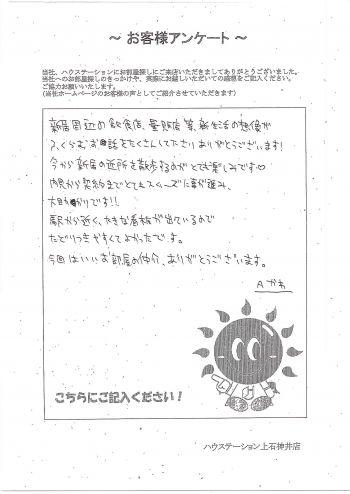 ～ お客様アンケート ～
当社、ハウステーションにお部屋探しにご来店いただきましてありがとうございました。
当社へのお部屋探しのきっかけや、実際にお越しいただいての感想をご記入ください。
ご協力お願いいたします。
(当社ホームページのお客様の声としてご紹介させていただきます)
新居周辺の飲食店、量販店 等、新生活の想像が
ふくらむお話をたくさんして下さりありがとうございます!
今から新居の近所を散歩するのがとても楽しみです♡
内見から契約までとてもスムーズに事が運び、
大助かりです!!
駅から近く、大きな看板が出ているので
たどりつきやすくてよかったです。
今回はいいお部屋の仲介、ありがとうございます。
Aかわ
こちらにご記入ください!
ハウステーション上石神井店